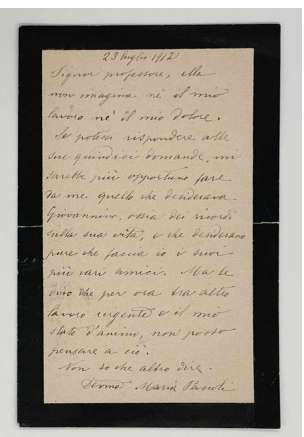 23 luglio 1912
Signor professore, ella
non imagina nè il mio
lavoro nè il mio dolore.
Se potessi rispondere alle
sue quindici domande, mi
sarebbe più opportuno fare
da me quello che desiderava
Giovannino, ossia dei ricordi
sulla sua vita, e che desiderano
pure che faccia io i suoi
più cari amici. Ma le
dico che per ora tra altro
lavoro urgente e il mio
stato d'animo, non posso
pensare a ciò.
Non so che altro dire.
Maria Pascoli